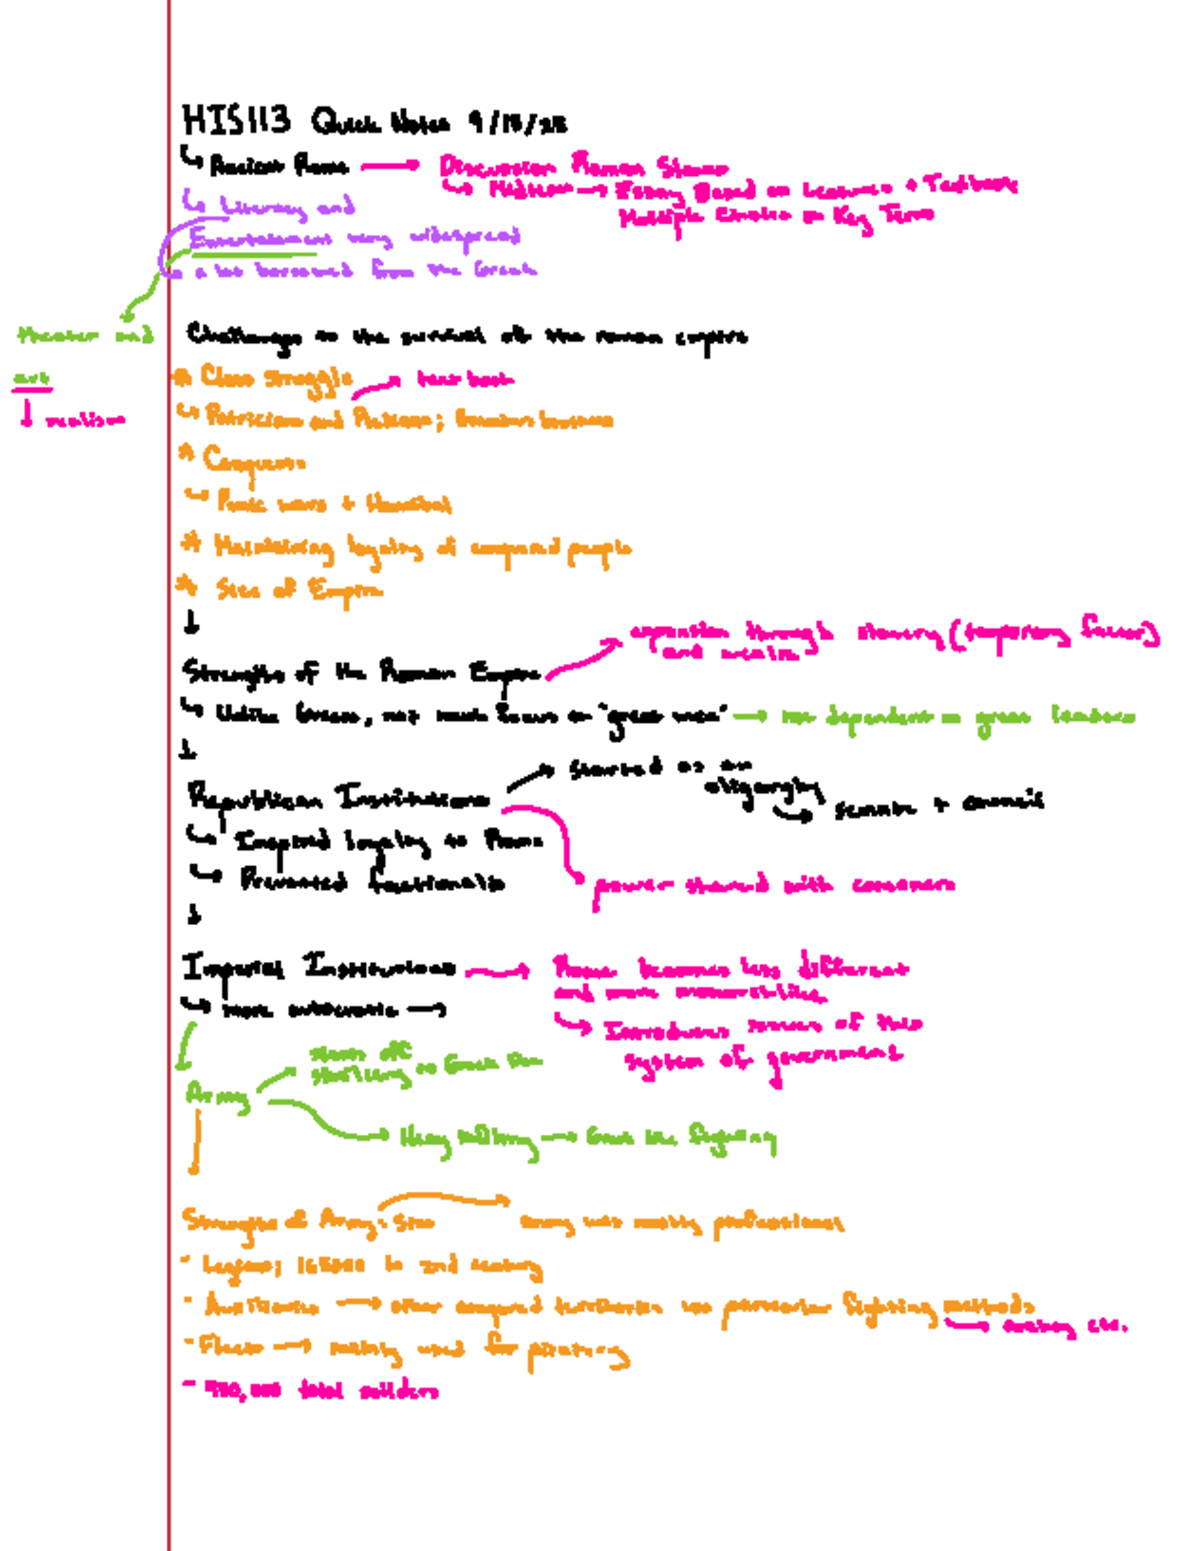 HIS113 Quick Notes 9/18/25
Ancient Rome → Discussion Roman
Midterm → Essay Based on Lectures + Textbook
Multiple Choice on Key Terms
Literacy and
Entertainment very widespread
a lot borrowed from the Greek
Theater and
art
realism
Challenges to the survival of the roman empire
* Class Struggle → text book
Patricians and Plebeans;
* Conquests
Punic wars + Hannibal
* Maintaining loyalty of conquered people
* Size of Empire
Strengths of the Roman Empire
expansion through slavery (temporary factor)
and wealth
Unlike Greece, not much focus on "great men" → not dependent on great leaders
Republican Institutions
started as an
oligarchy
senate + council
Inspired loyalty to Rome
Prevented
power shared with commoners
Imperial Institutions → Rome becomes less different
and more
more autocratic →
Introduces of this
system of government
Army
start off
similarly to Greek
Heavy → Greek like fighting
Strengths of Army: Size
army was mostly professional
- Legions; in 2nd century
- Auxiliaries → other conquered territories use particular fighting methods
etc.
- Fleets → mainly used for
- total soldiers